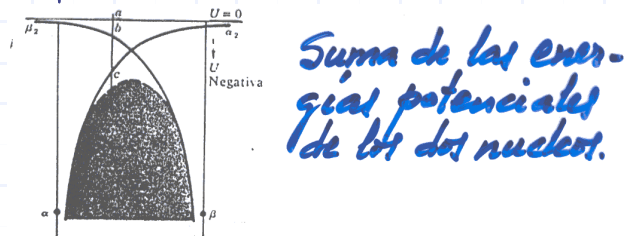 a
U = 0
β₂
b
α₂
c
U
Negativa
α
β
Suma de las ener-
gías potenciales
de los dos nucleos.